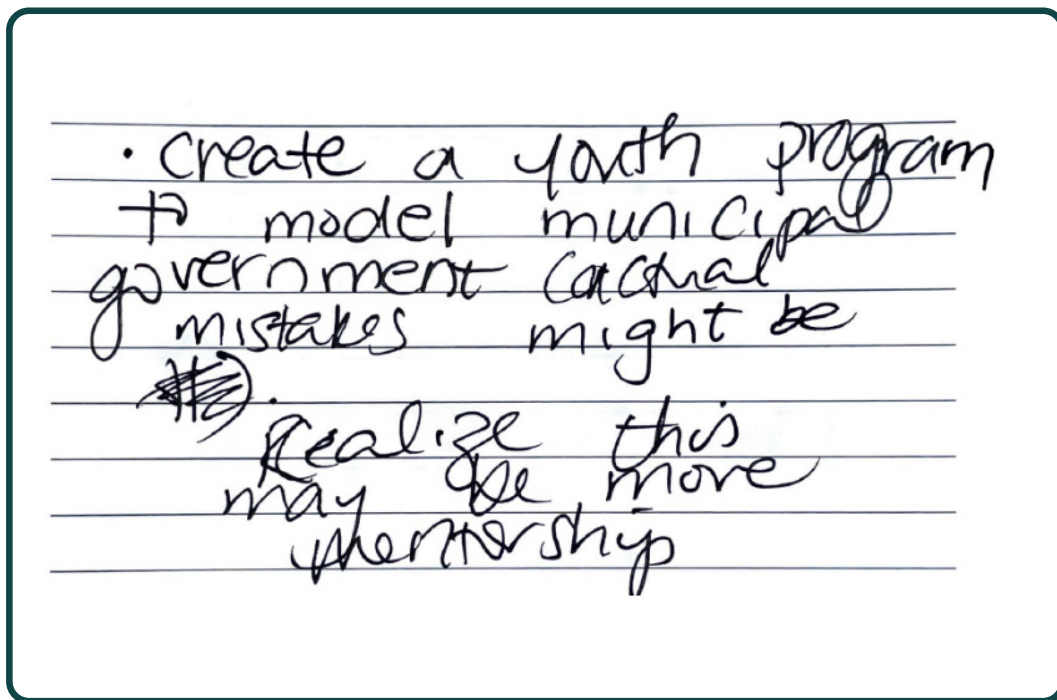 · Create a youth program
to model municipal
government (actual
mistakes might be
· Realize this
may be more
mentorship